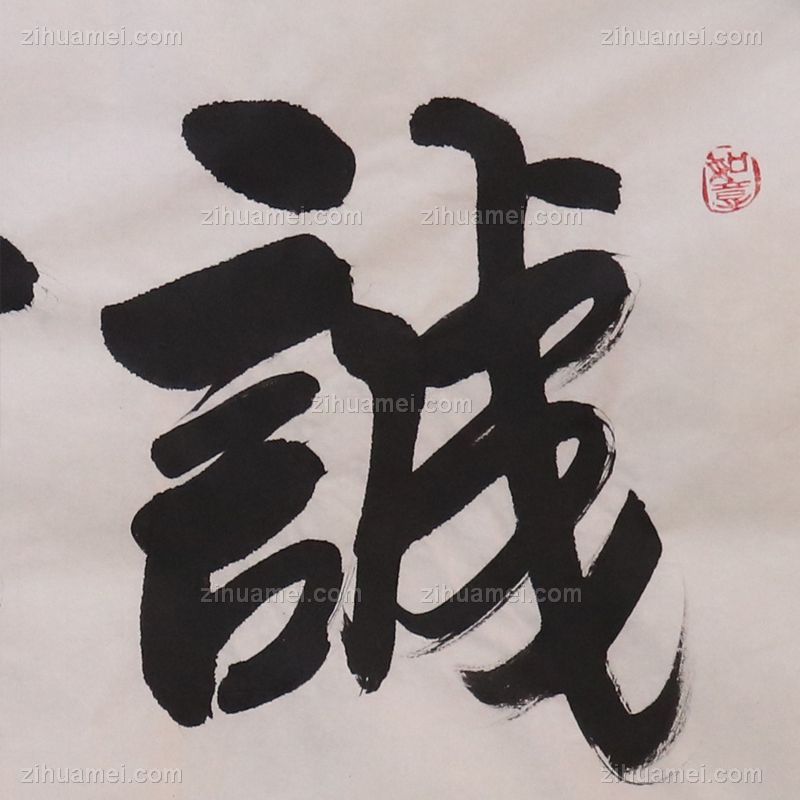 zihuamei.com zihuamei.com
誠
如意
zihuamei.com zihuamei.com
zihuamei.com
zihuamei.com zihuamei.com
zihuamei.com zihuamei.com